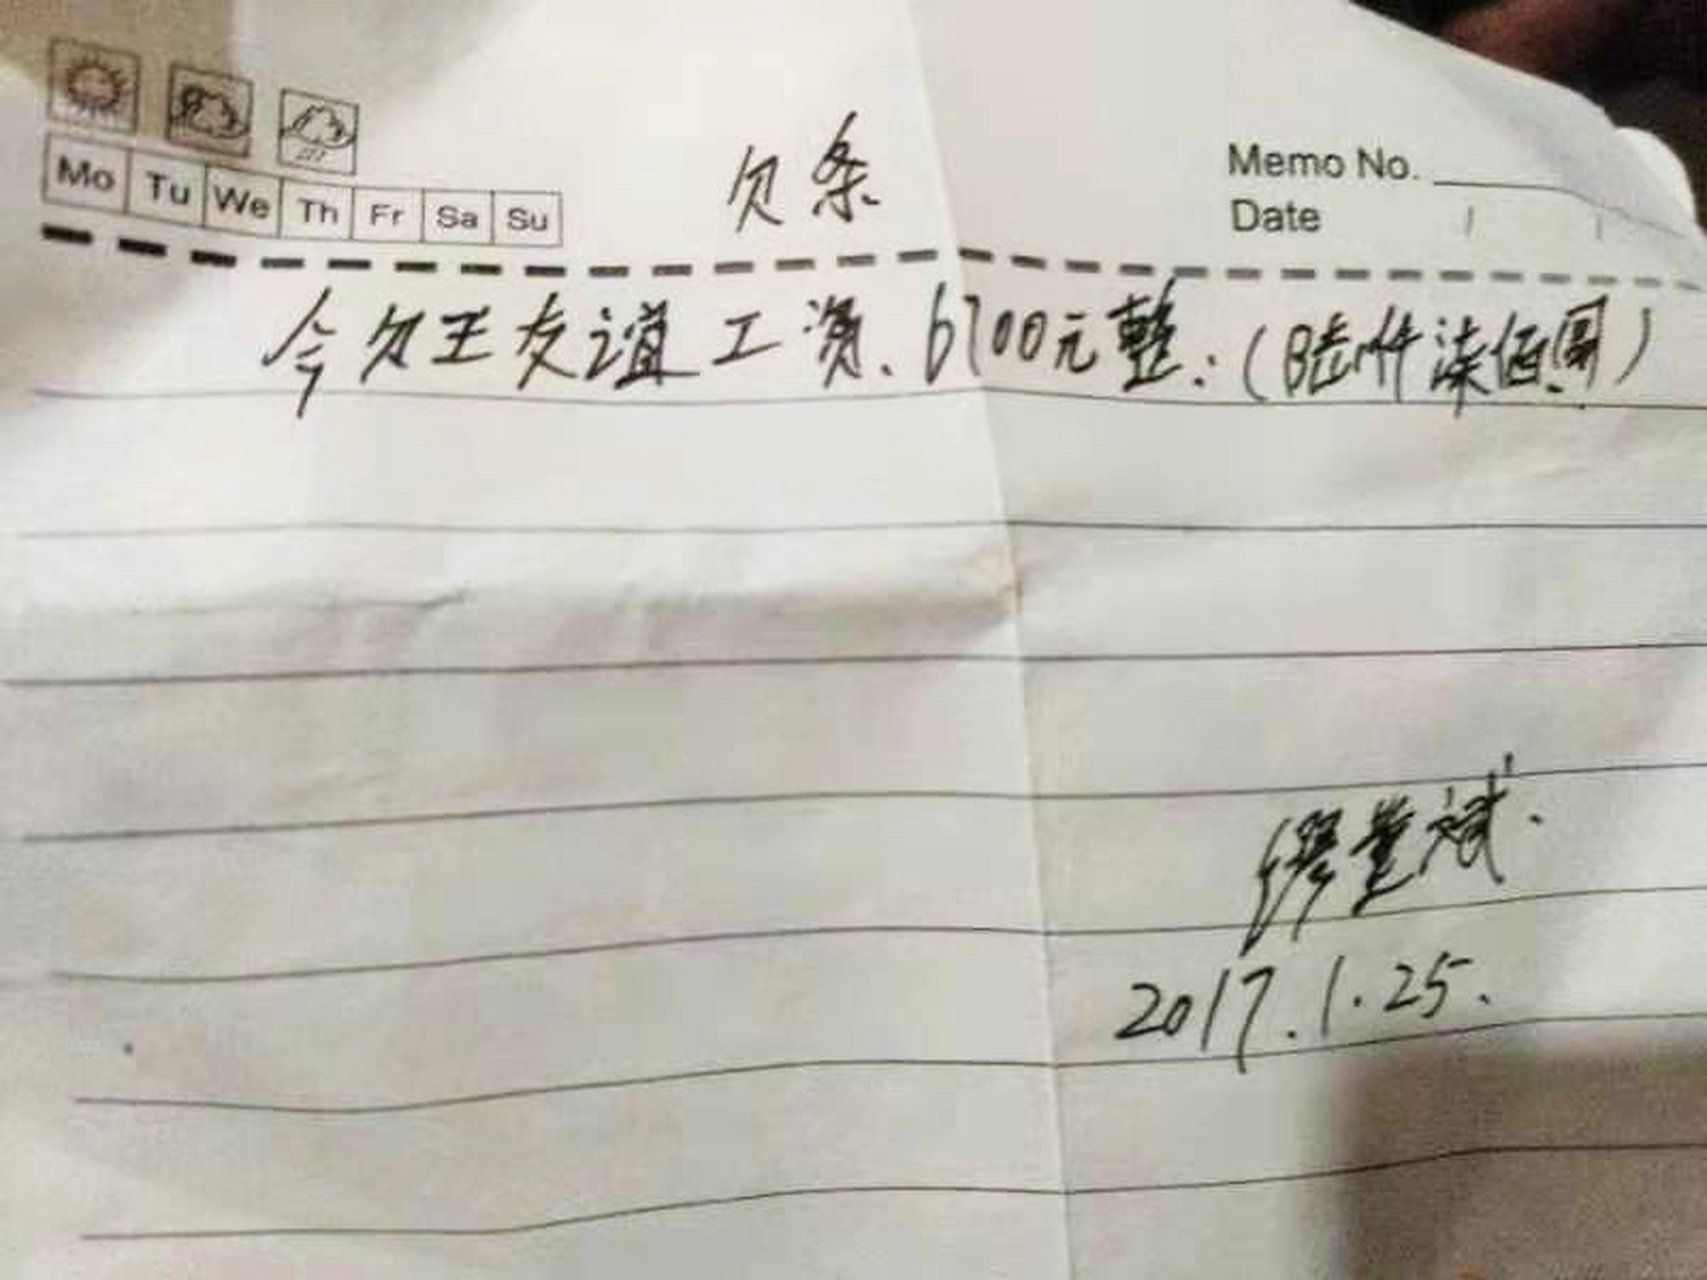 Mo Tu We Th Fr Sa Su
欠条
Memo No.
Date / /
今欠王友谊工资、6700元整:(陆仟柒佰圆)
2017.1.25.